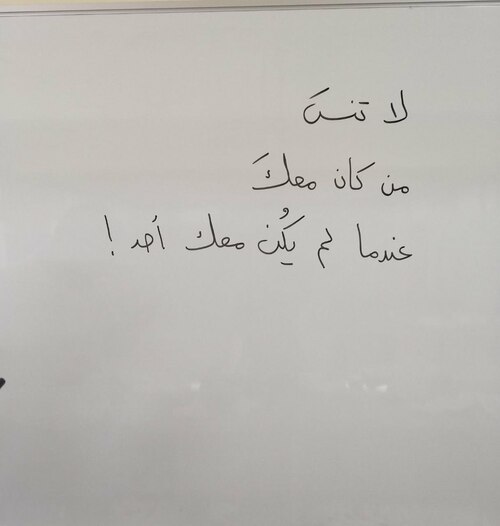 لا تنسَ
من كان معكَ
عندما لم يكُن معك أحد !